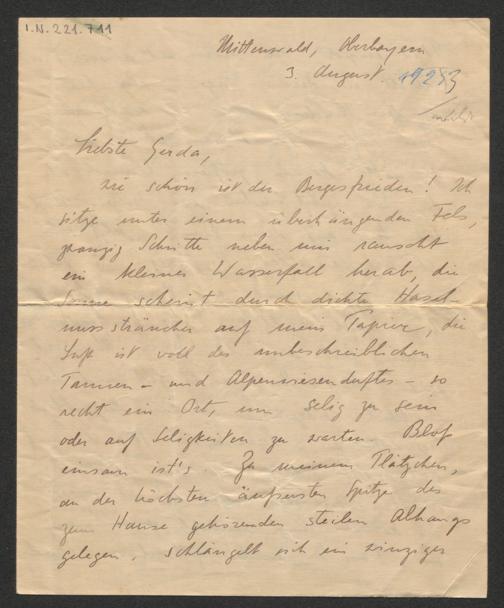 I.N. 221.711
Mittenwald, Oberbayern
3. August. 1923
Liebste Gerda,
wie schön ist der Bergesfrieden! Ich
sitze unter einem überhängenden Fels,
zwanzig Schritte neben mir rauscht
ein kleiner Wasserfall herab, die
Sonne scheint durch dichte Hasel-
nusssträucher auf mein Papier, die
Luft ist voll des unbeschreiblichen
Tannen- und Alpenwiesenduftes - so
recht ein Ort, um selig zu sein
oder auf Seligkeiten zu warten. Bloß
einsam ist's. Zu meinem Plätzchen,
an der höchsten äußersten Spitze des
zum Hause gehörenden steilen Abhangs
gelegen, schlängelt sich ein winziger